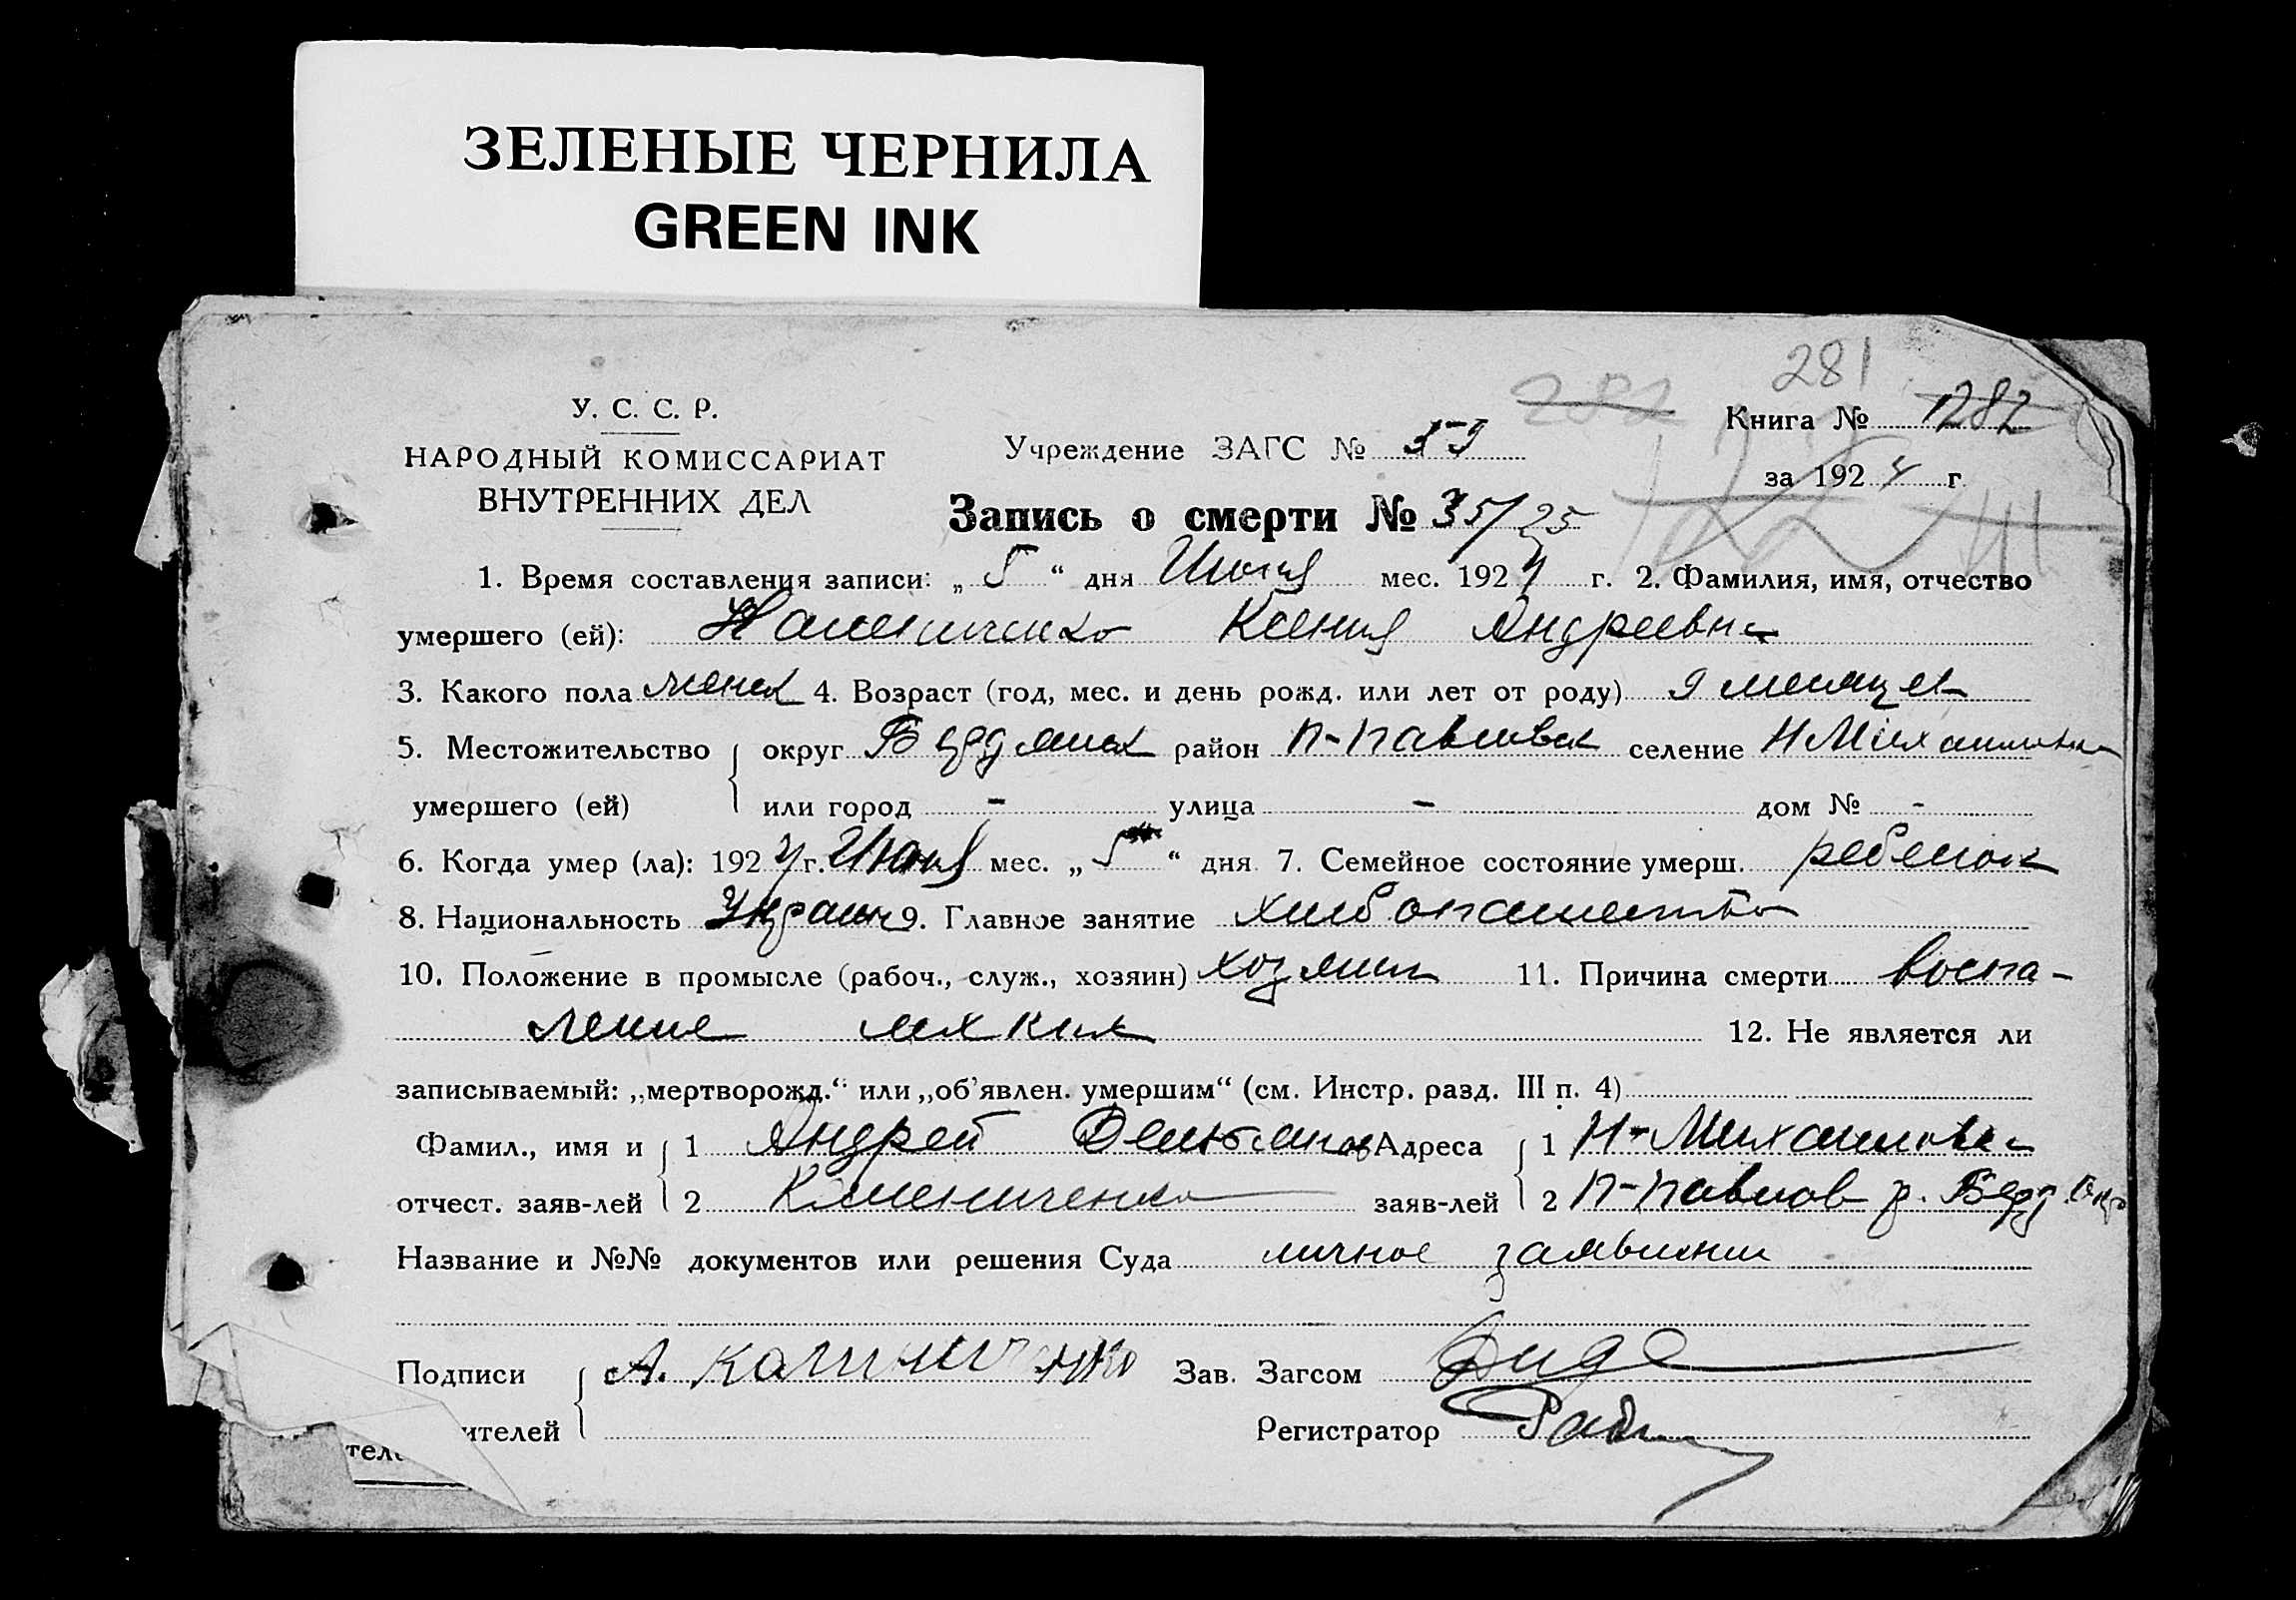 ЗЕЛЕНЫЕ ЧЕРНИЛА
GREEN INK
281
282
У. С. С. Р.
НАРОДНЫЙ КОМИССАРИАТ
ВНУТРЕННИХ ДЕЛ
Учреждение ЗАГС №
Книга № 1282
за 1924 г.
Запись о смерти № 35/25
1. Время составления записи: „ 5 “ дня Июня мес. 1924 г. 2. Фамилия, имя, отчество
умершего (ей): Ксения Андреевна
3. Какого пола женск 4. Возраст (год, мес. и день рожд. или лет от роду) 9 месяцев
5. Местожительство округ Бердянск район П-Павловск селение Н Михайловка
умершего (ей) или город - улица - дом № -
6. Когда умер (ла): 1924 г. Июня мес. „ 5 “ дня 7. Семейное состояние умерш. ребенок
8. Национальность Украин 9. Главное занятие хлебопашество
10. Положение в промысле (рабоч., служ., хозяин) хозяин 11. Причина смерти воспа-
ление легких 12. Не является ли
записываемый: „мертворожд.“ или „об’явлен. умершим“ (см. Инстр. разд. III п. 4)
Фамил., имя и 1 Андрей Адреса 1 Н-Михайловка
отчест. заяв-лей 2 заяв-лей 2 П-Павлов р. Берд. Окр
Название и №№ документов или решения Суда личное заявление
Подписи А. Зав. Загсом
ителей Регистратор
тел